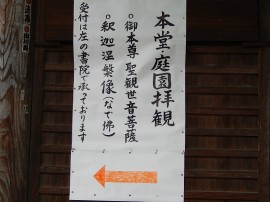 本堂・庭園拝観
○御本尊聖観世音菩薩
○釈迦涅槃像(なで佛)
受付は左の書院で承っております